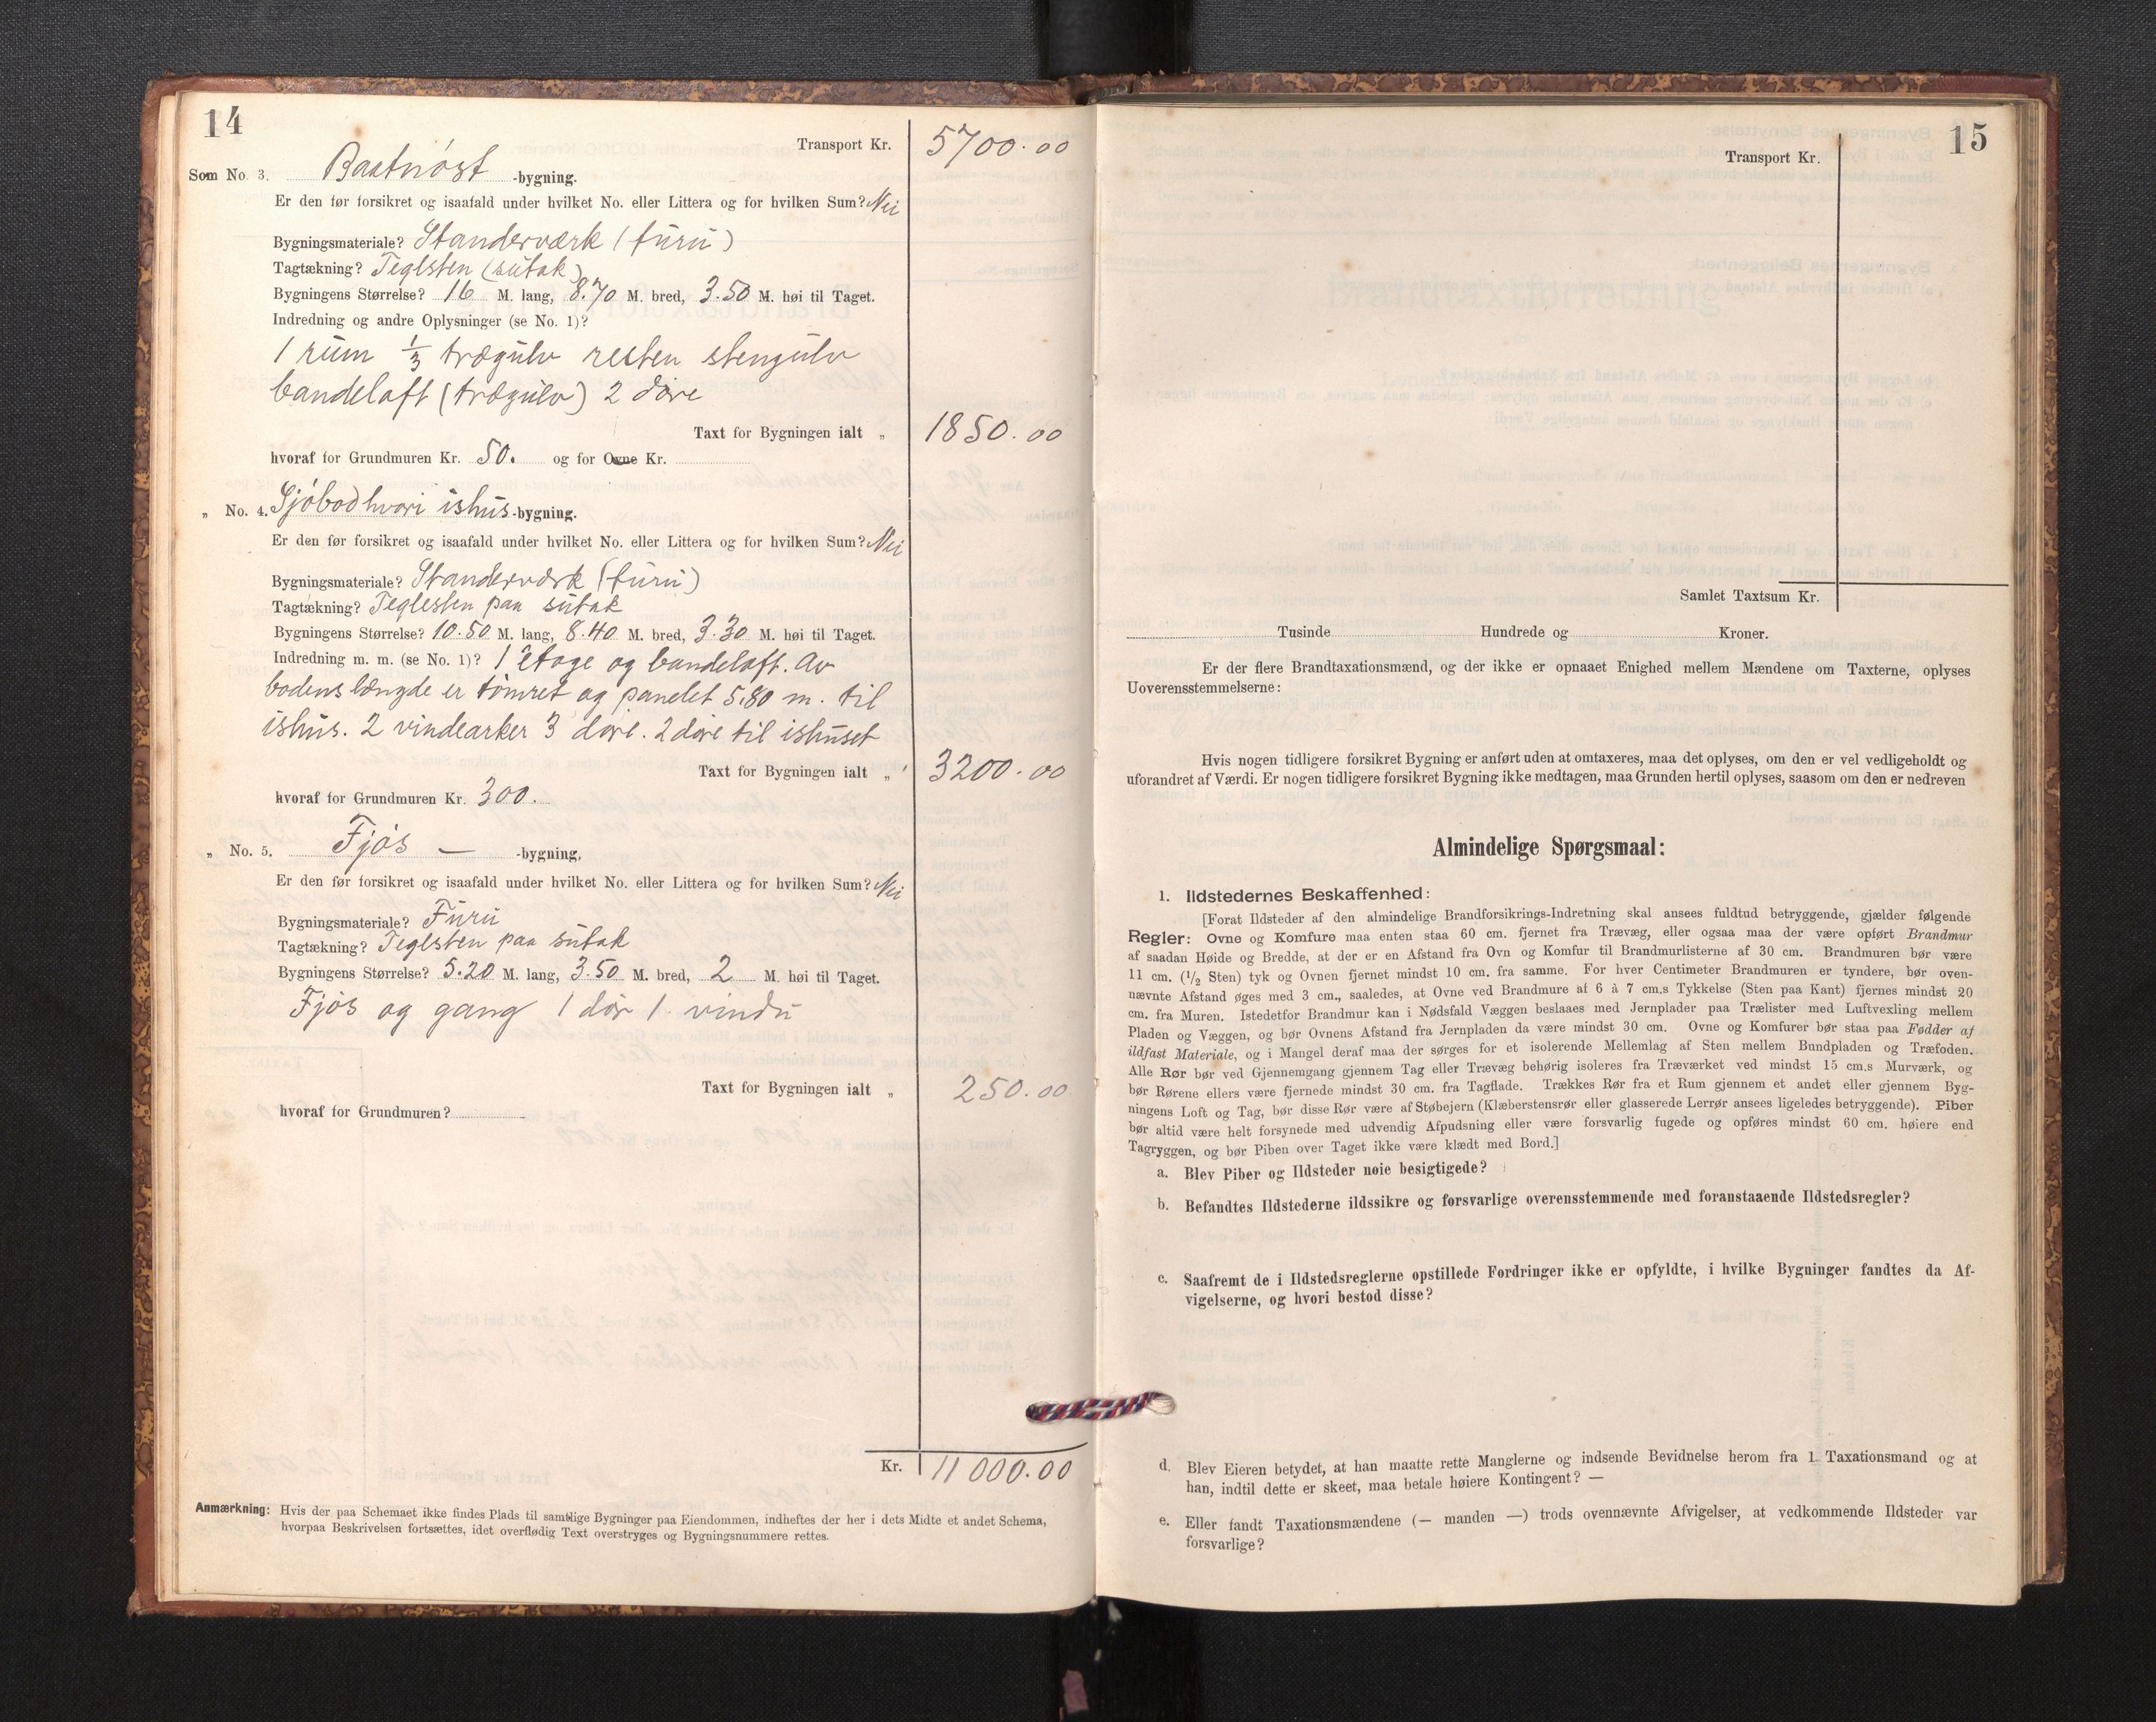 14
Transport Kr. 5700.00
Som No. 3. Baatnøst -bygning.
Er den før forsikret og isaafald under hvilket No. eller Littera og for hvilken Sum? Nei
Bygningsmateriale? Standerværk (furu)
Tagtækning? Teglsten (sutak)
Bygningens Størrelse? 16 M. lang, 8.70 M. bred, 3.50 M. høi til Taget.
Indredning og andre Oplysninger (se No. 1)?
1 rum 1/3 trægulv resten stengulv
bandeloft (trægulv) 2 døre
Taxt for Bygningen ialt „ 1850.00
hvoraf for Grundmuren Kr. 50. og for Ovne Kr.
„ No. 4. Sjøbod hvori ishus -bygning.
Er den før forsikret og isaafald under hvilket No. eller Littera og for hvilken Sum? Nei
Bygningsmateriale? Standerværk (furu)
Tagtækning? Teglesten paa sutak
Bygningens Størrelse? 10.50 M. lang, 8.40 M. bred, 3.30 M. høi til Taget.
Indredning m. m. (se No. 1)? 1 etage og bandeloft. Av
bodens længde er tømret og panelet 5.80 m. til
ishus. 2 vindearker 3 døre. 2 døre til ishuset
Taxt for Bygningen ialt „ 3200.00
hvoraf for Grundmuren Kr. 300.
„ No. 5. Fjøs — -bygning.
Er den før forsikret og isaafald under hvilket No. eller Littera og for hvilken Sum? Nei
Bygningsmateriale? Furu
Tagtækning? Teglsten paa sutak
Bygningens Størrelse? 5.20 M. lang, 3.50 M. bred, 2 M. høi til Taget.
Fjøs og gang 1 dør 1 vindu
Taxt for Bygningen ialt „ 250.00
hvoraf for Grundmuren?
Kr. 11000.00
Anmærkning: Hvis der paa Schemaet ikke findes Plads til samtlige Bygninger paa Eiendommen, indheftes der her i dets Midte et andet Schema,
hvorpaa Beskrivelsen fortsættes, idet overflødig Text overstryges og Bygningsnummere rettes.
15
Transport Kr.
Samlet Taxtsum Kr.
Tusinde Hundrede og Kroner.
Er der flere Brandtaxationsmænd, og der ikke er opnaaet Enighed mellem Mændene om Taxterne, oplyses
Uoverensstemmelserne:
Hvis nogen tidligere forsikret Bygning er anført uden at omtaxeres, maa det oplyses, om den er vel vedligeholdt og
uforandret af Værdi. Er nogen tidligere forsikret Bygning ikke medtagen, maa Grunden hertil oplyses, saasom om den er nedreven
Almindelige Spørgsmaal:
1. Ildstedernes Beskaffenhed:
[Forat Ildsteder af den almindelige Brandforsikrings-Indretning skal ansees fuldtud betryggende, gjælder følgende
Regler: Ovne og Komfure maa enten staa 60 cm. fjernet fra Trævæg, eller ogsaa maa der være opført Brandmur
af saadan Høide og Bredde, at der er en Afstand fra Ovn og Komfur til Brandmurlisterne af 30 cm. Brandmuren bør være
11 cm. (1/2 Sten) tyk og Ovnen fjernet mindst 10 cm. fra samme. For hver Centimeter Brandmuren er tyndere, bør oven-
nævnte Afstand øges med 3 cm., saaledes, at Ovne ved Brandmure af 6 à 7 cm.s Tykkelse (Sten paa Kant) fjernes mindst 20
cm. fra Muren. Istedetfor Brandmur kan i Nødsfald Væggen beslaaes med Jernplader paa Trælister med Luftvexling mellem
Pladen og Væggen, og bør Ovnens Afstand fra Jernpladen da være mindst 30 cm. Ovne og Komfurer bør staa paa Fødder af
ildfast Materiale, og i Mangel deraf maa der sørges for et isolerende Mellemlag af Sten mellem Bundpladen og Træfoden.
Alle Rør bør ved Gjennemgang gjennem Tag eller Trævæg behørig isoleres fra Træværket ved mindst 15 cm.s Murværk, og
bør Rørene ellers være fjernede mindst 30 cm. fra Tagflade. Trækkes Rør fra et Rum gjennem et andet eller gjennem Byg-
ningens Loft og Tag, bør disse Rør være af Støbejern (Klæberstensrør eller glasserede Lerrør ansees ligeledes betryggende). Piber
bør altid være helt forsynede med udvendig Afpudsning eller være forsvarlig fugede og opføres mindst 60 cm. høiere end
Tagryggen, og bør Piben over Taget ikke være klædt med Bord.]
a. Blev Piber og Ildsteder nøie besigtigede?
b. Befandtes Ildstederne ildssikre og forsvarlige overensstemmende med foranstaaende Ildstedsregler?
c. Saafremt de i Ildstedsreglerne opstillede Fordringer ikke er opfyldte, i hvilke Bygninger fandtes da Af-
vigelserne, og hvori bestod disse?
d. Blev Eieren betydet, at han maatte rette Manglerne og indsende Bevidnelse herom fra 1 Taxationsmand og at
han, indtil dette er skeet, maa betale høiere Kontingent? —
e. Eller fandt Taxationsmændene (— manden —) trods ovennævnte Afvigelser, at vedkommende Ildsteder var
forsvarlige?